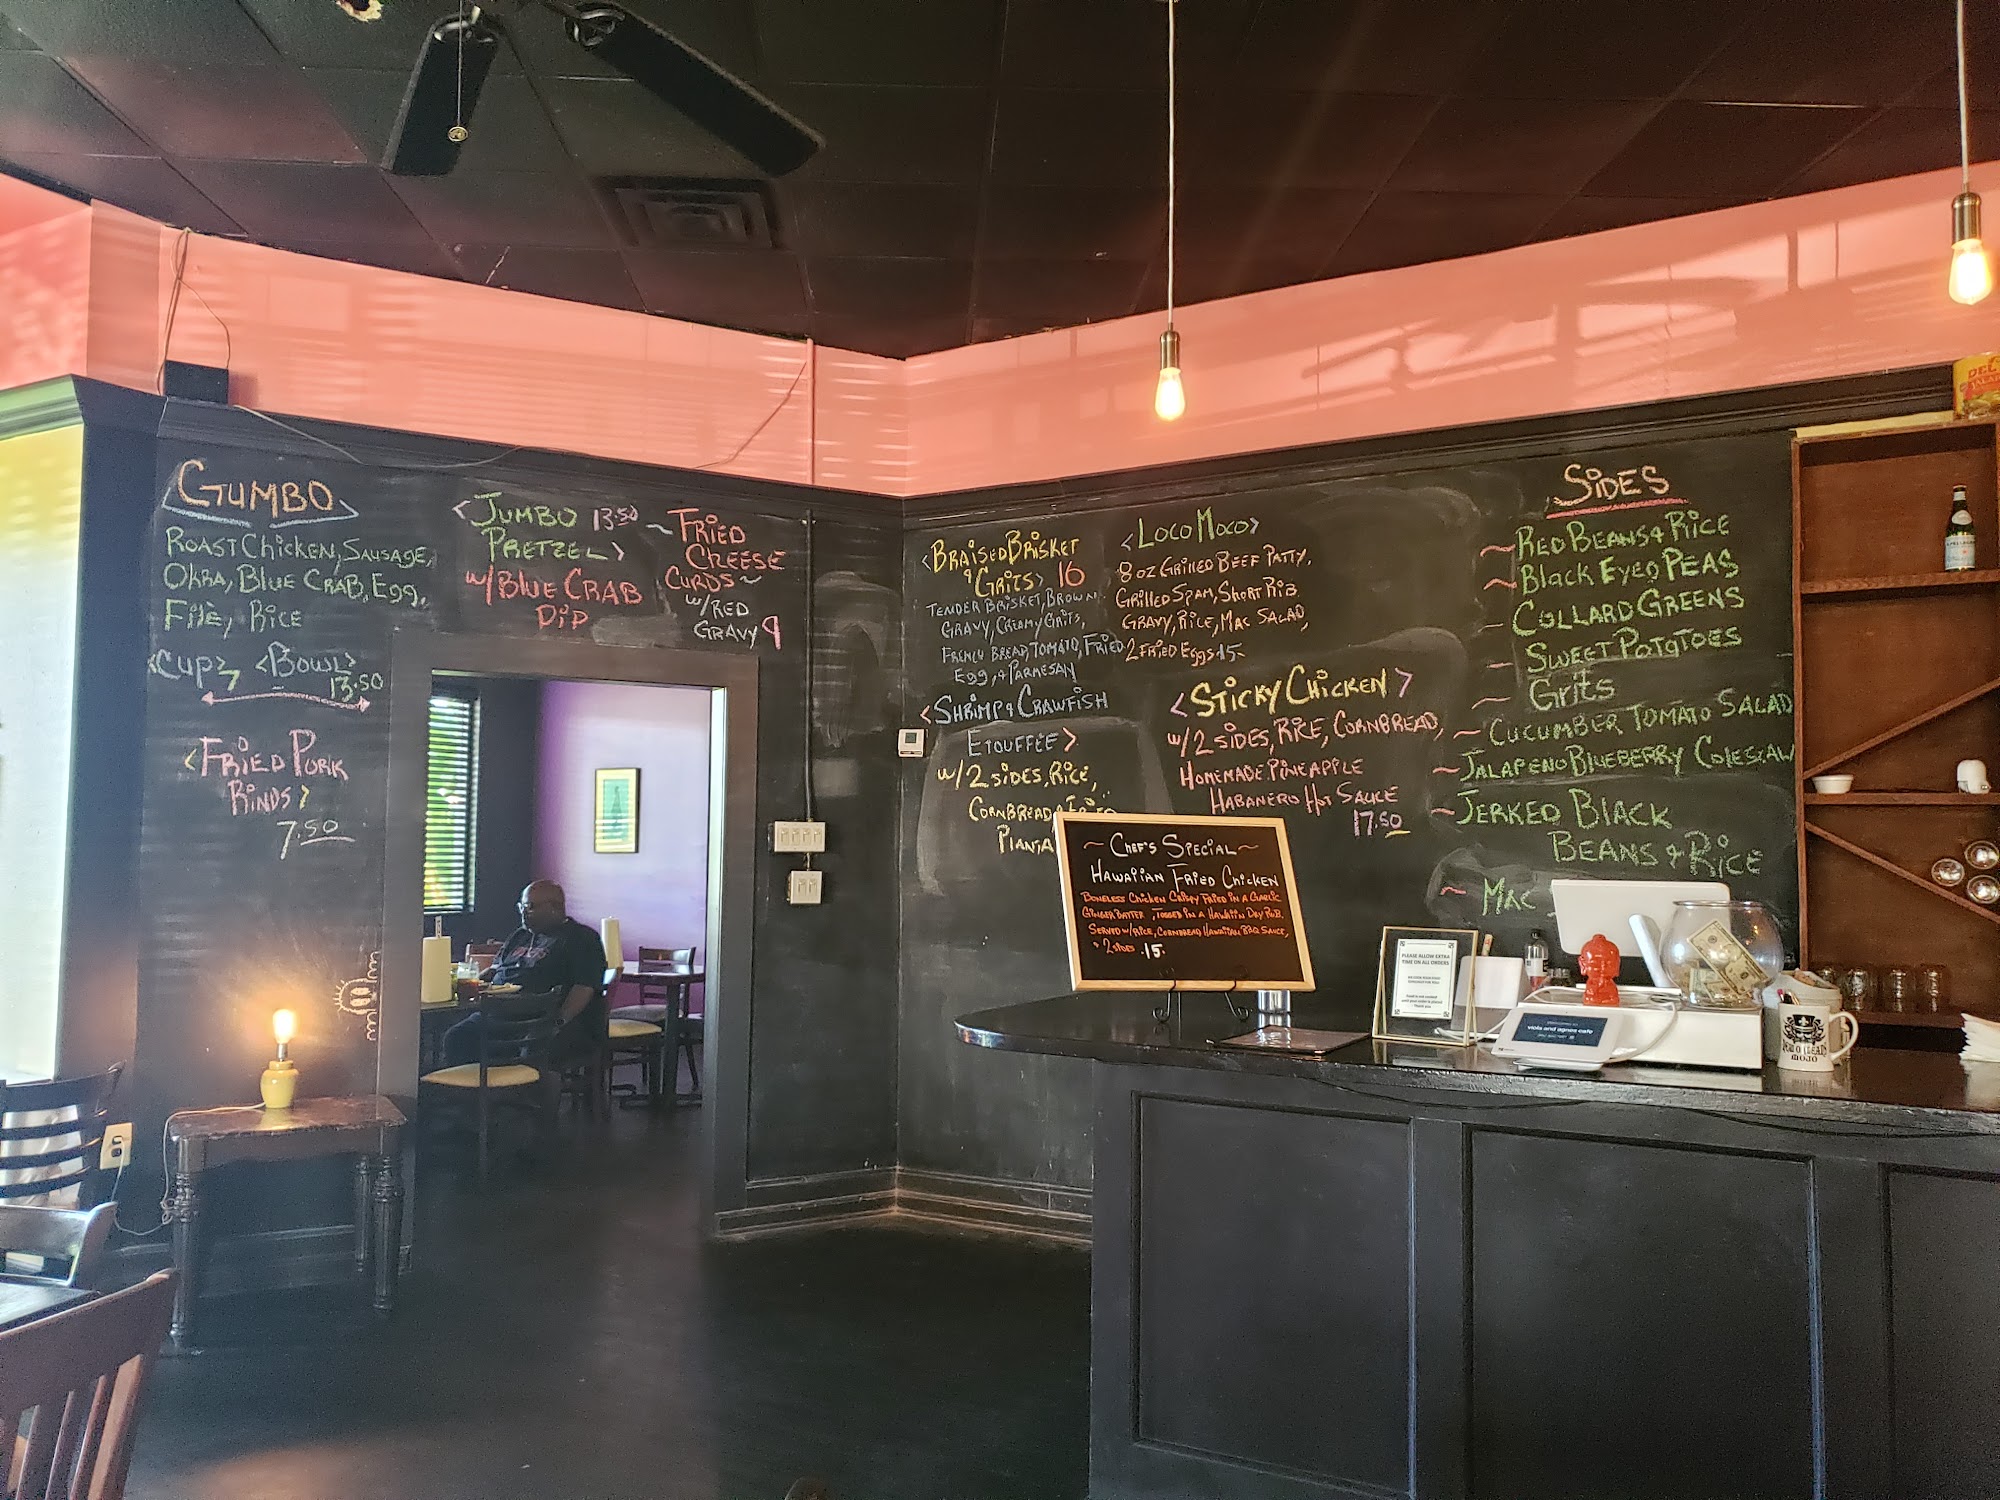 <GUMBO>
ROAST CHICKEN, SAUSAGE,
OKRA, BLUE CRAB, EGG,
FILE, RICE
<CUP> 7 <BOWL> 13.50
<FRIED PORK
RINDS>
7.50
<JUMBO 13.50
PRETZEL>
W/ BLUE CRAB
DIP
~FRIED
CHEESE
CURDS~
W/ RED
GRAVY 9
<BRAISED BRISKET
& GRITS> 16
TENDER BRISKET, BROWN
GRAVY, CREAMY GRITS,
FRENCH BREAD, TOMATO, FRIED
EGG, & PARMESAN
<SHRIMP & CRAWFISH
ETOUFFÉE>
W/ 2 SIDES, RICE,
CORNBREAD
<LOCO MOCO>
8 OZ GRILLED BEEF PATTY,
GRILLED SPAM, SHORT RIB
GRAVY, RICE, MAC SALAD,
2 FRIED EGGS 15-
<STICKY CHICKEN>
W/ 2 SIDES, RICE, CORNBREAD,
HOMEMADE PINEAPPLE
HABANERO HOT SAUCE
17.50
SIDES
~RED BEANS & RICE
~BLACK EYED PEAS
- COLLARD GREENS
~ SWEET POTATOES
~ Grits
~ CUCUMBER TOMATO SALAD
~JALAPENO BLUEBERRY COLESLAW
~JERKED BLACK
BEANS & RICE
~ MAC
~ CHEF'S SPECIAL~
HAWAIIAN FRIED CHICKEN
BONELESS CHICKEN CRISPY FRIED IN A GARLIC
GINGER BATTER, TOSSED IN A HAWAIIN DRY RUB.
SERVED W/ RICE, CORNBREAD HAWAIIAN BBQ SAUCE,
& 2 SIDES .15.
PLEASE ALLOW EXTRA
TIME ON ALL ORDERS
viola and agnes cafe
MOJO